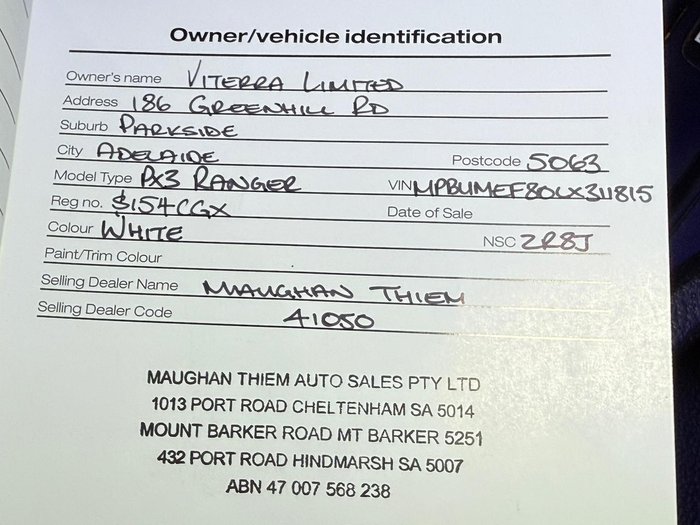 Owner/vehicle identification
Owner's name VITERRA LIMITED
Address 186 GREENHILL RD
Suburb PARKSIDE
City ADELAIDE Postcode 5063
Model Type PX3 RANGER VIN MPBUMEF80LX311815
Reg no. S154CGX Date of Sale
Colour WHITE NSC 2R8J
Paint/Trim Colour
Selling Dealer Name MAUGHAN THIEM
Selling Dealer Code 41050
MAUGHAN THIEM AUTO SALES PTY LTD
1013 PORT ROAD CHELTENHAM SA 5014
MOUNT BARKER ROAD MT BARKER 5251
432 PORT ROAD HINDMARSH SA 5007
ABN 47 007 568 238